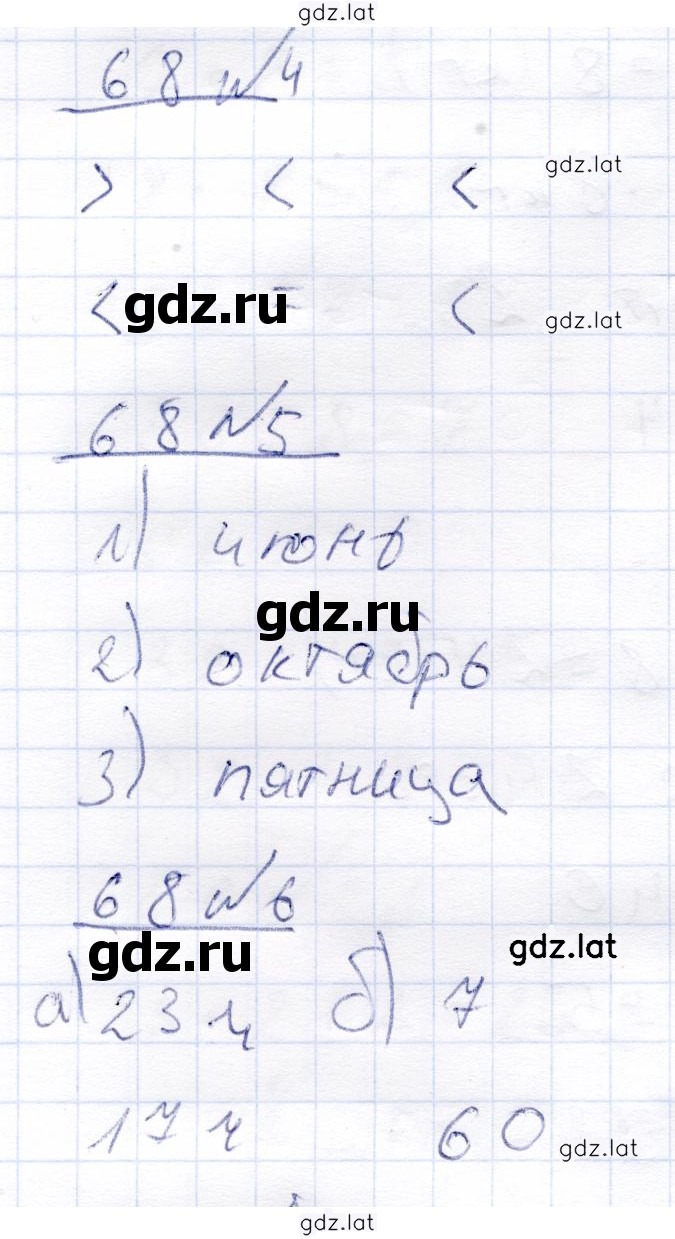 gdz.lat
68 №4
> < < gdz.lat
< gdz.ru = < gdz.lat
68 №5
1) июнь
gdz.ru
2) октябрь
3) пятница
68 №6
gdz.ru gdz.lat
а) 23 ч б) 7
17 ч 60 gdz.lat
gdz.lat